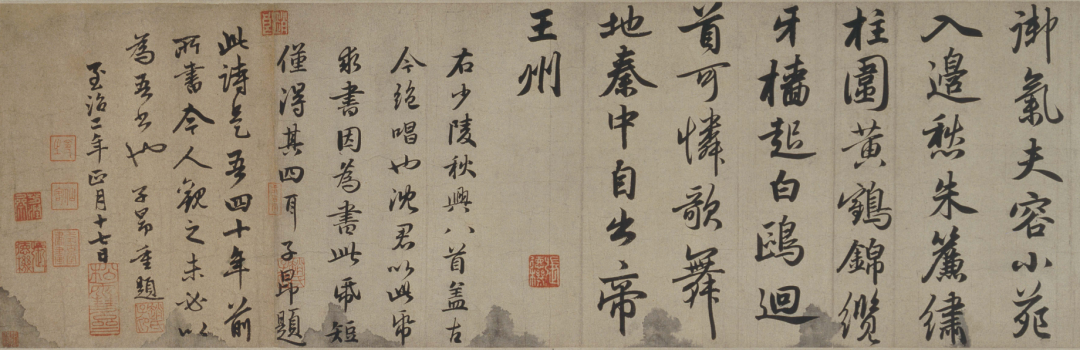 御氣夫容小苑
入邊愁朱簾繡
柱圍黃鶴錦纜
牙檣起白鷗迴
首可憐歌舞
地秦中自古帝
王州
右少陵秋興八首蓋古
今絕唱也沈君以此帋
求書因為書此帋短
僅得其四耳子昂題
此詩是吾四十年前
所書今人觀之未必以
為吾書也子昂重題
至治二年正月十七日